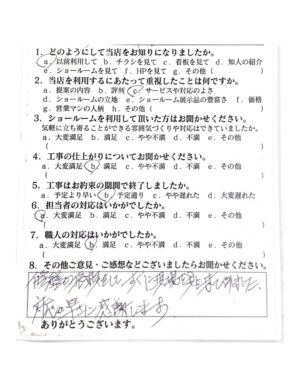 1. どのようにして当店をお知りになりましたか。
a. 以前利用して b. チラシを見て c. 看板を見て d. 知人の紹介
e. ショールームを見て f. HPを見て g. その他 ( )
2. 当店を利用するにあたって重視したことは何ですか。
a. 提案の内容 b. 評判 c. サービスや対応のよさ
d. ショールームの立地 e. ショールーム展示品の豊富さ f. 価格
g. 営業マンの人柄 h. その他 ( )
3. ショールームを利用して頂いた方はお聞かせください。
気軽に立ち寄ることができる雰囲気づくりや対応はできていましたか。
a. 大変満足 b. 満足 c. やや不満 d. 不満 e. その他
( )
4. 工事の仕上がりについてお聞かせください。
a. 大変満足 b. 満足 c. やや不満 d. 不満 e. その他
( )
5. 工事はお約束の期間で終了しましたか。
a. 予定より早い b. 予定通り c. やや遅れた d. 大変遅れた
6. 担当者の対応はいかがでしたか。
a. 大変満足 b. 満足 c. やや不満 d. 不満 e. その他
( )
7. 職人の対応はいかがでしたか。
a. 大変満足 b. 満足 c. やや不満 d. 不満 e. その他
( )
8. その他ご意見・ご感想などございましたらお聞かせください。
すぐに現場を見に来てくれました、
対応の早さに感謝します
ありがとうございます。